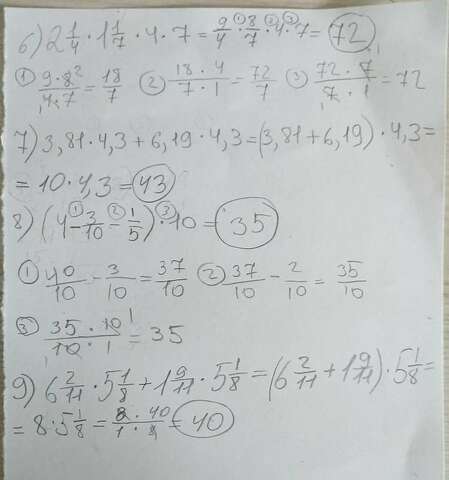 6) 2 1/4 · 1 1/7 · 4 · 7 = 9/4 ·① 8/7 ·② 4 ·③ 7 = 72
① 9·8²/4·7 = 18/7 ② 18·4/7·1 = 72/7 ③ 72·7¹/7·1 = 72
7) 3,81·4,3+6,19·4,3=(3,81+6,19)·4,3=
= 10·4,3=43
8) (4 -① 3/10 -② 1/5) ·③ 10 = 35
① 40/10 - 3/10 = 37/10 ② 37/10 - 2/10 = 35/10
③ 35·10¹/10·1 = 35
9) 6 2/11 · 5 1/8 + 1 9/11 · 5 1/8 = (6 2/11 + 1 9/11) · 5 1/8 =
= 8·5 1/8 = 8·40/1·8 = 40